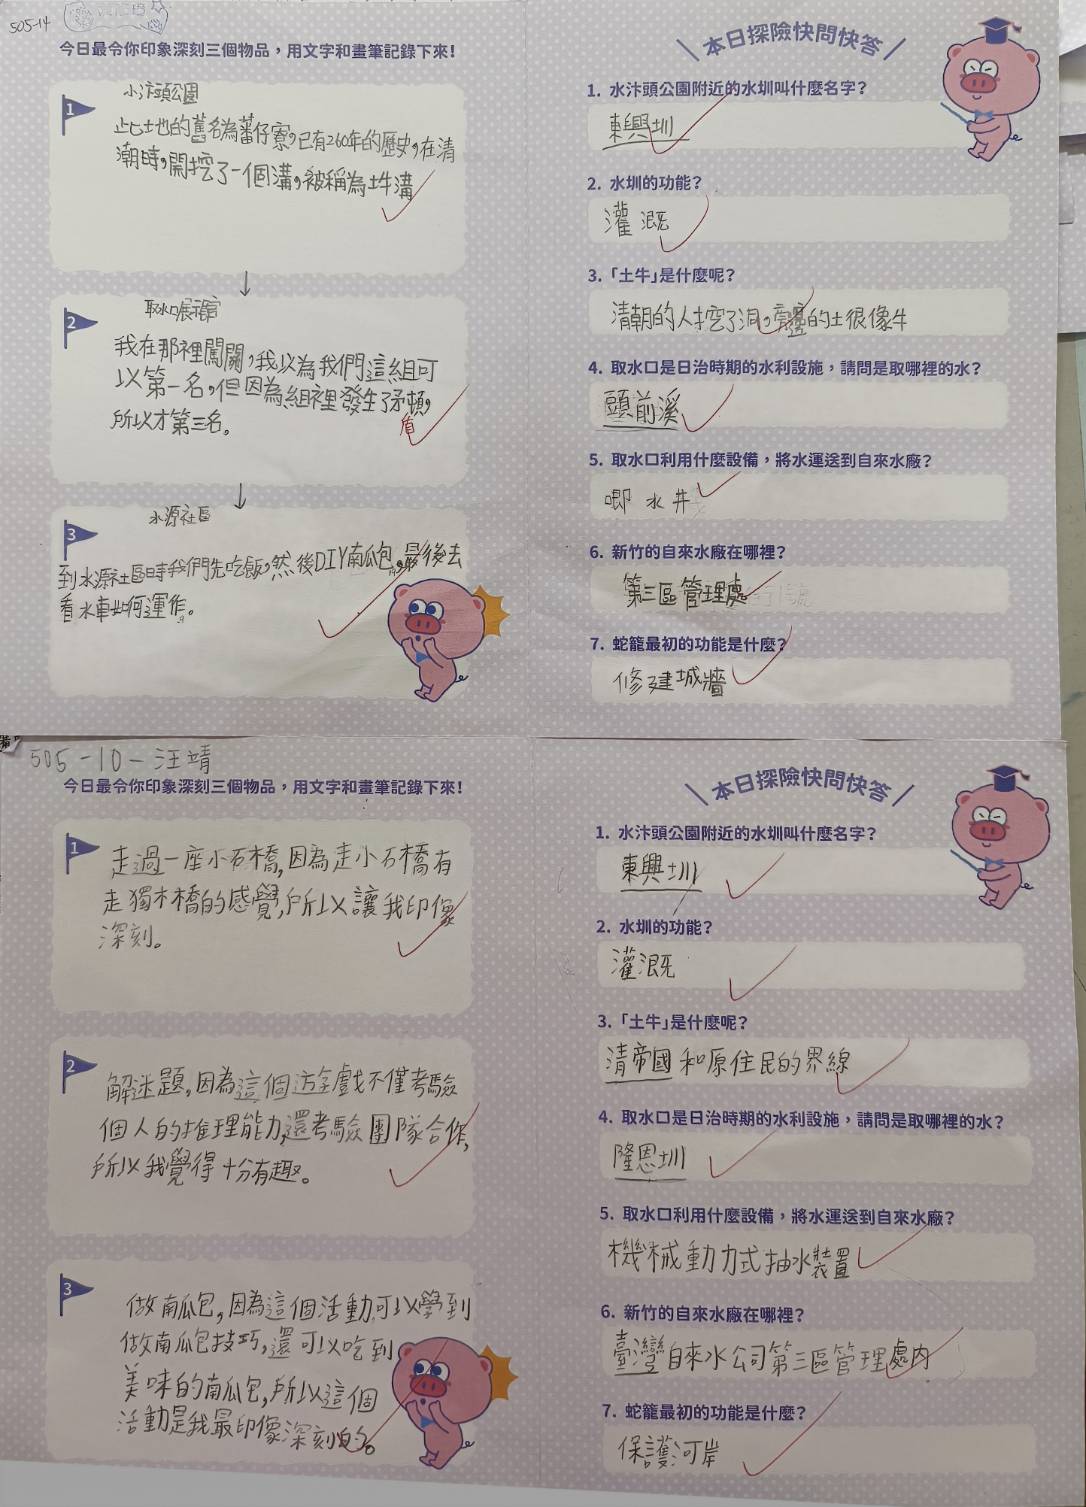 505-14
今日最令你印象深刻三個物品，用文字和畫筆記錄下來!
1
小汴頭公園
此土地的舊名為蕃仔寮，已有260年的歷史，在清
潮時，開挖了一個溝，被稱為土牛溝
2
取水口展示館
我在那裡闖關，我以為我們這組可
以第一名，但因為組裡發生了矛頓，
盾
所以才第三名。
3
水源社區
到水源社區時我們先吃飯，然後DIY南瓜包，最後去
看水車如何運作。
本日探險快問快答
1. 水汴頭公園附近的水圳叫什麼名字?
東興圳
2. 水圳的功能?
灌溉
3.「土牛」是什麼呢?
清朝的人挖了洞，旁邊的土很像牛
4. 取水口是日治時期的水利設施，請問是取哪裡的水?
頭前溪
5. 取水口利用什麼設備，將水運送到自來水廠?
唧水井
6. 新竹的自來水廠在哪裡?
第三區管理處
7. 蛇籠最初的功能是什麼?
修建城牆
505-10-汪靖
今日最令你印象深刻三個物品，用文字和畫筆記錄下來!
1
走過一座小石橋，因為走小石橋有
走獨木橋的感覺，所以讓我印像
深刻。
2
解迷題，因為這個遊戲不僅考驗
個人的推理能力，還考驗團隊合作，
所以我覺得十分有趣。
3
做南瓜包，因為這個活動可以學到
做南瓜包技巧，還可以吃到
美味的南瓜包，所以這個
活動是我最印像深刻的。
本日探險快問快答
1. 水汴頭公園附近的水圳叫什麼名字?
東興圳
2. 水圳的功能?
灌溉
3.「土牛」是什麼呢?
清帝國和原住民的界線
4. 取水口是日治時期的水利設施，請問是取哪裡的水?
隆恩圳
5. 取水口利用什麼設備，將水運送到自來水廠?
機械動力式抽水裝置
6. 新竹的自來水廠在哪裡?
臺灣自來水公司第三區管理處內
7. 蛇籠最初的功能是什麼?
保護河岸